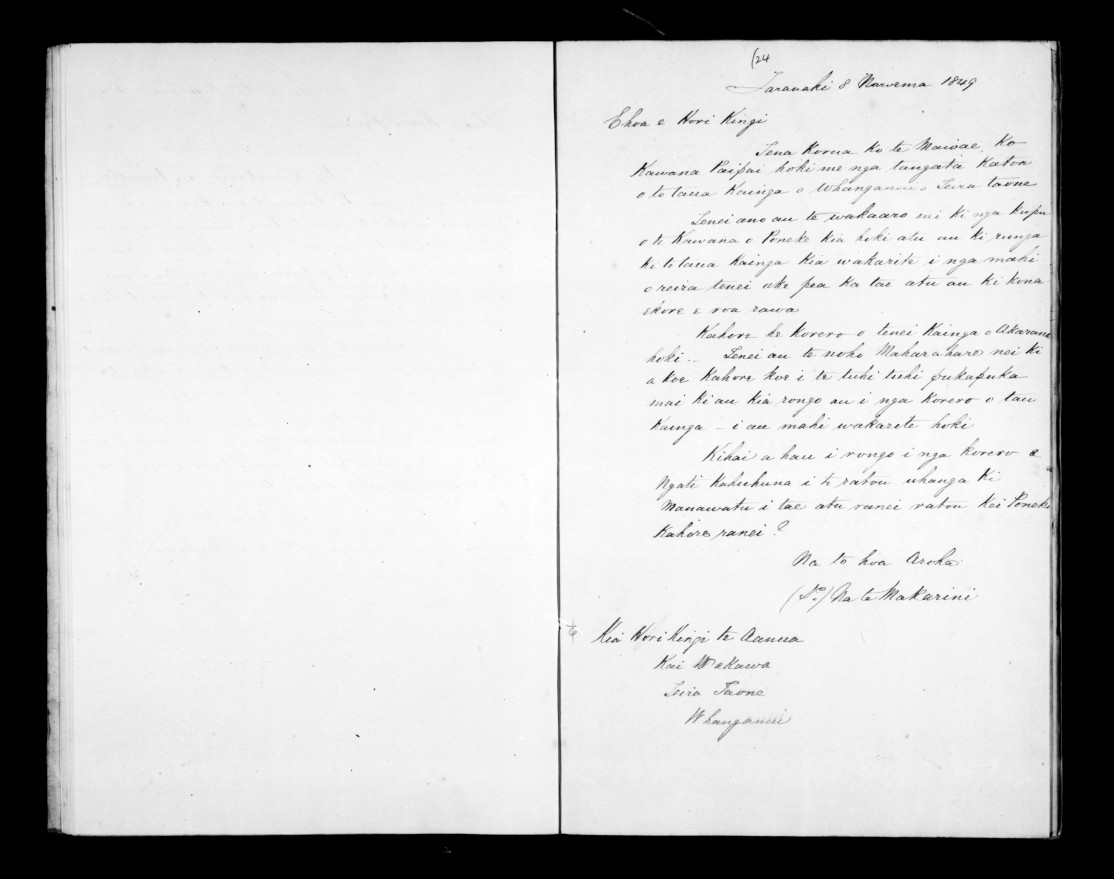 (24
Taranaki 8 Nowema 1849
E hoa e Hori Kingi
Tena Korua ko te Mawae, Ko
Kawana Paipai hoki me nga tangata Katoa
o to taua Kainga o Whanganui o Teira taone
Tenei ano au te wakaaro nei ki nga kupu
o te Kawana o Poneke kia hoki atu au ki runga
ki to taua kainga kia wakarite i nga mahi
o reira tenei ake pea ka tae atu au ki kona
ekore e roa rawa
Kahore he korero o tenei Kainga o Akarana
hoki – Tenei au te noho Maharahara nei ki
a koe Kahore koe i te tuhi tuhi pukapuka
mai ki au kia rongo au i nga Korero o tau
Kainga – i au mahi wakarite hoki
Kihai a hau i rongo i nga korero a
Ngati Kahuhuna i to ratou uhanga ki
Manawatu i tae atu ranei ratou kei Poneke
Kahore ranei?
Na to hoa Aroha
Na te Makarini
Kia Hori Kingi te Aanua
Kai Wakawa
Teira Taone
Whanganui